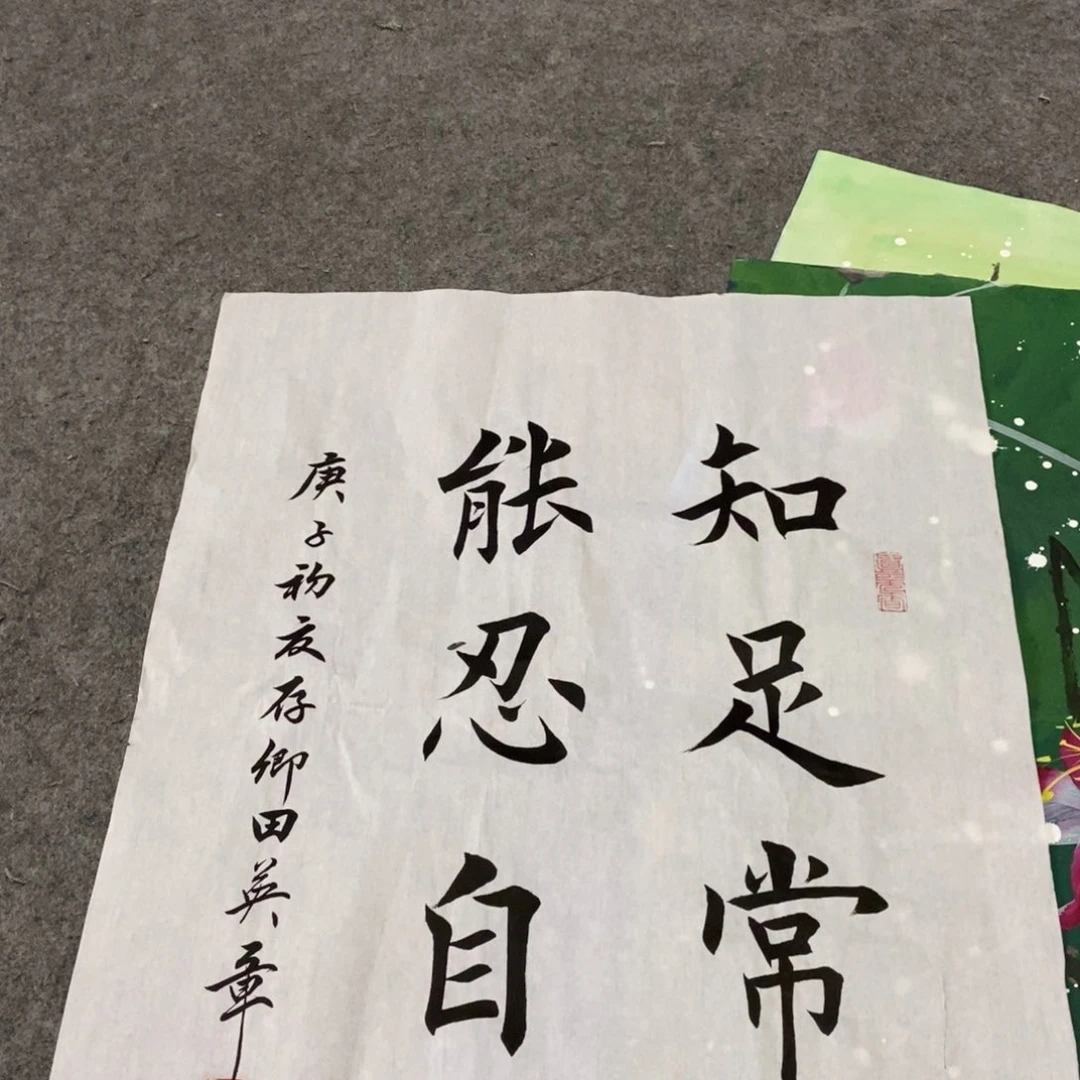 知足常
能忍自
庚子初夏存卿田英章